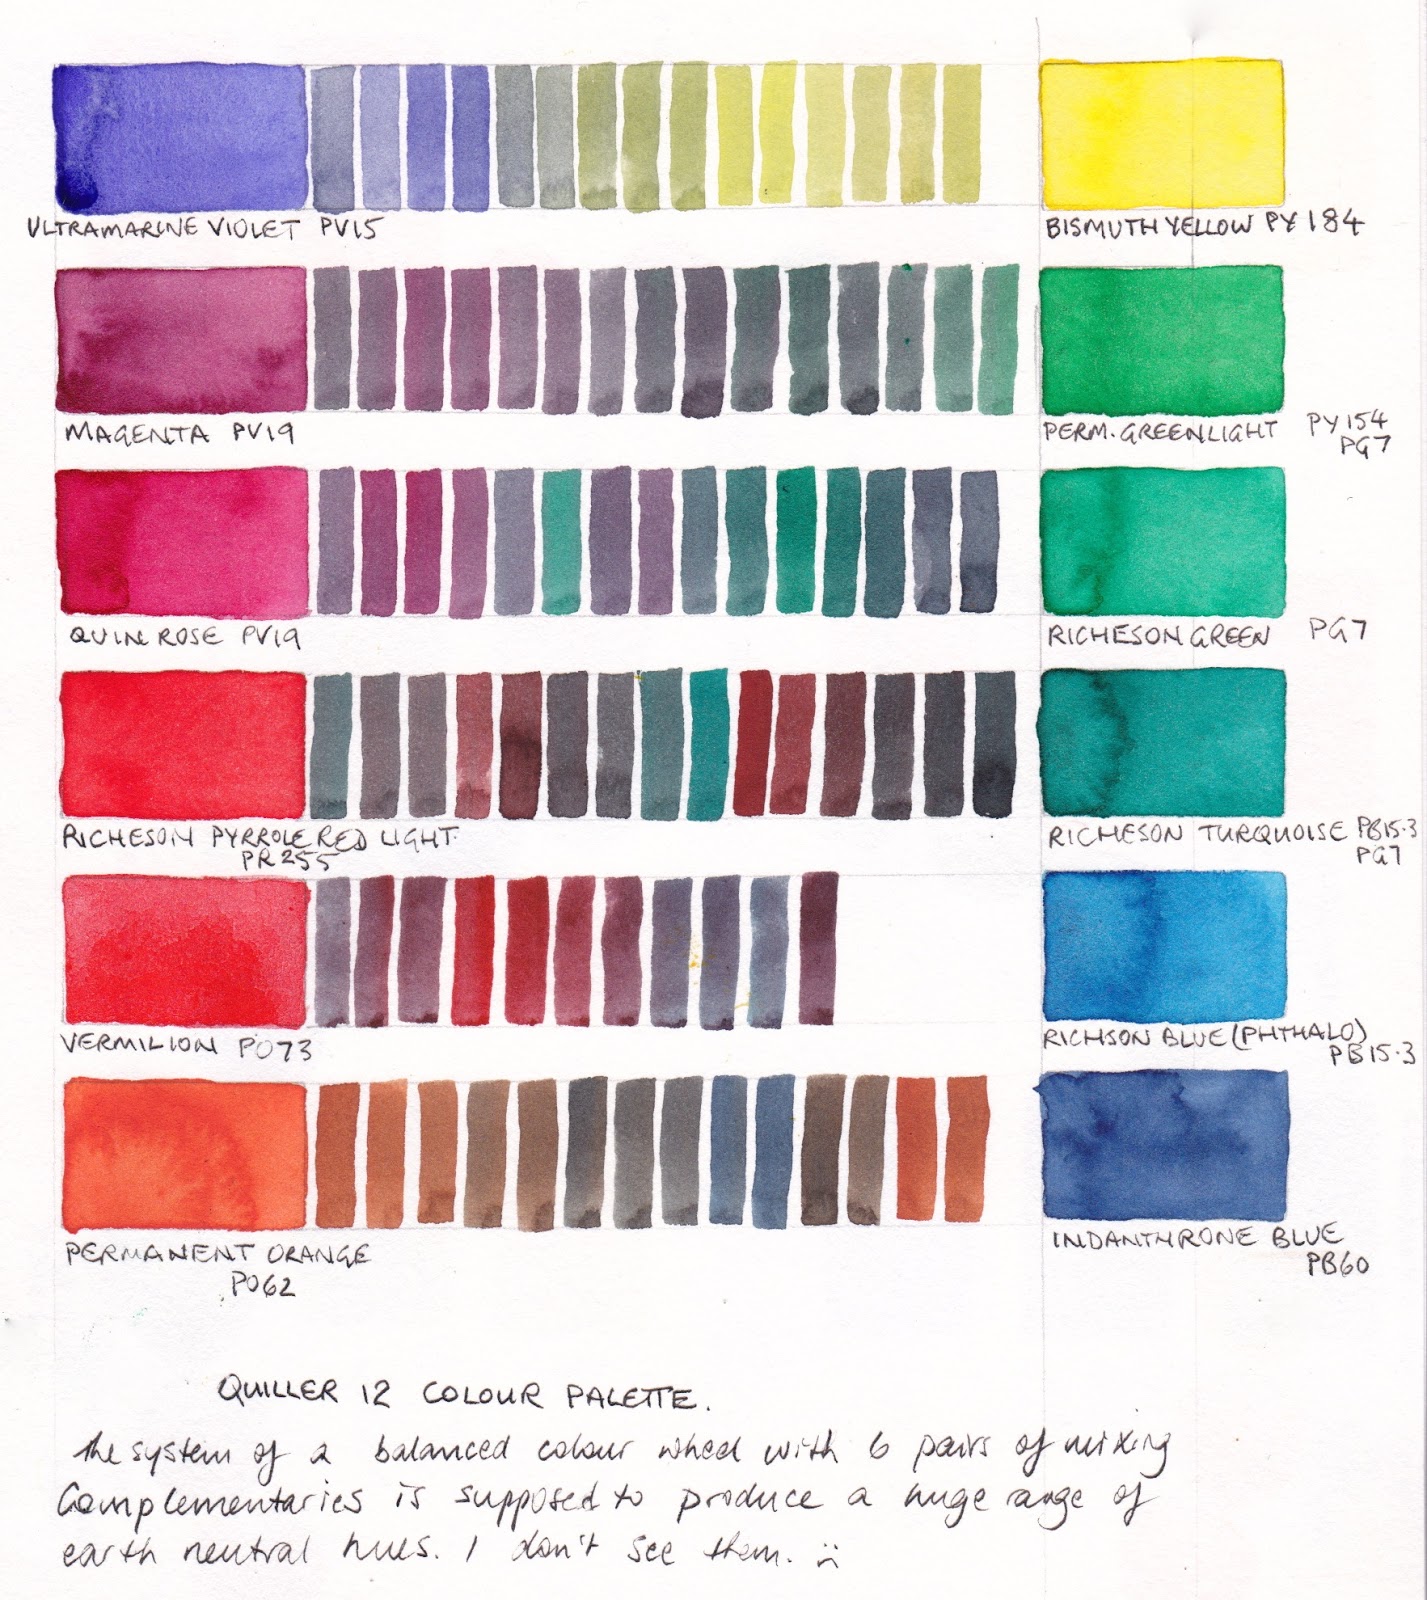 ULTRAMARINE VIOLET PV15
BISMUTH YELLOW PY 184
MAGENTA PV19
PERM. GREEN LIGHT PY154
PG7
QUIN ROSE PV19
RICHESON GREEN PG7
RICHESON PYRROLE RED LIGHT.
PR255
RICHESON TURQUOISE PB15.3
PG7
VERMILION PO73
RICHSON BLUE (PHTHALO)
PB15.3
PERMANENT ORANGE
PO62
INDANTHRONE BLUE
PB60
QUILLER 12 COLOUR PALETTE.
the system of a balanced colour wheel with 6 pairs of mixing
Complementaries is supposed to produce a huge range of
earth neutral hues. I don't see them. :(